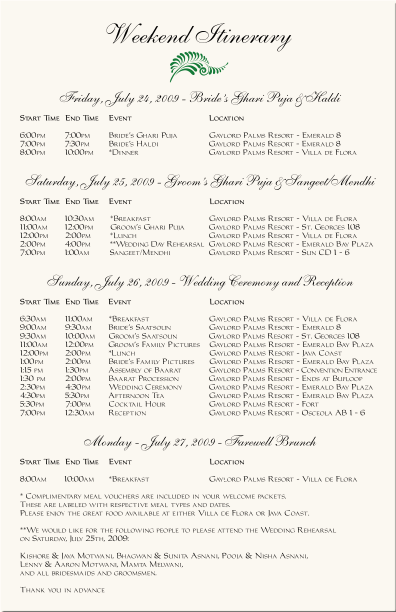 Weekend Itinerary
Friday, July 24, 2009 - Bride's Ghari Puja & Haldi
Start Time End Time Event Location
6:00pm 7:00pm Bride's Ghari Puja Gaylord Palms Resort - Emerald 8
7:00pm 7:30pm Bride's Haldi Gaylord Palms Resort - Emerald 8
8:00pm 10:00pm *Dinner Gaylord Palms Resort - Villa de Flora
Saturday, July 25, 2009 - Groom's Ghari Puja & Sangeet/Mendhi
Start Time End Time Event Location
8:00am 10:30am *Breakfast Gaylord Palms Resort - Villa de Flora
11:00am 12:00pm Groom's Ghari Puja Gaylord Palms Resort - St. Georges 108
12:00pm 2:00pm *Lunch Gaylord Palms Resort - Villa de Flora
2:00pm 4:00pm **Wedding Day Rehearsal Gaylord Palms Resort - Emerald Bay Plaza
7:00pm 1:00am Sangeet/Mendhi Gaylord Palms Resort - Sun CD 1 - 6
Sunday, July 26, 2009 - Wedding Ceremony and Reception
Start Time End Time Event Location
6:30am 11:00am *Breakfast Gaylord Palms Resort - Villa de Flora
9:00am 9:30am Bride's Saatsoun Gaylord Palms Resort - Emerald 8
9:30am 10:00am Groom's Saatsoun Gaylord Palms Resort - St. Georges 108
11:00am 12:00pm Groom's Family Pictures Gaylord Palms Resort - Emerald Bay Plaza
12:00pm 2:00pm *Lunch Gaylord Palms Resort - Java Coast
1:00pm 2:00pm Bride's Family Pictures Gaylord Palms Resort - Emerald Bay Plaza
1:15 pm 1:30pm Assembly of Baarat Gaylord Palms Resort - Convention Entrance
1:30 pm 2:00pm Baarat Procession Gaylord Palms Resort - Ends at Bufloop
2:30pm 4:30pm Wedding Ceremony Gaylord Palms Resort - Emerald Bay Plaza
4:30pm 5:30pm Afternoon Tea Gaylord Palms Resort - Emerald Bay Plaza
5:30pm 7:00pm Cocktail Hour Gaylord Palms Resort - Fort
7:00pm 12:30am Reception Gaylord Palms Resort - Osceola AB 1 - 6
Monday - July 27, 2009 - Farewell Brunch
Start Time End Time Event Location
8:00am 10:00am *Breakfast Gaylord Palms Resort - Villa de Flora
* Complimentary meal vouchers are included in your welcome packets.
These are labeled with respective meal types and dates.
Please enjoy the great food available at either Villa de Flora or Java Coast.
**We would like for the following people to please attend the Wedding Rehearsal
on Saturday, July 25th, 2009:
Kishore & Jaya Motwani, Bhagwan & Sunita Asnani, Pooja & Nisha Asnani,
Lenny & Aaron Motwani, Mamta Melvani,
and all bridesmaids and groomsmen.
Thank you in advance